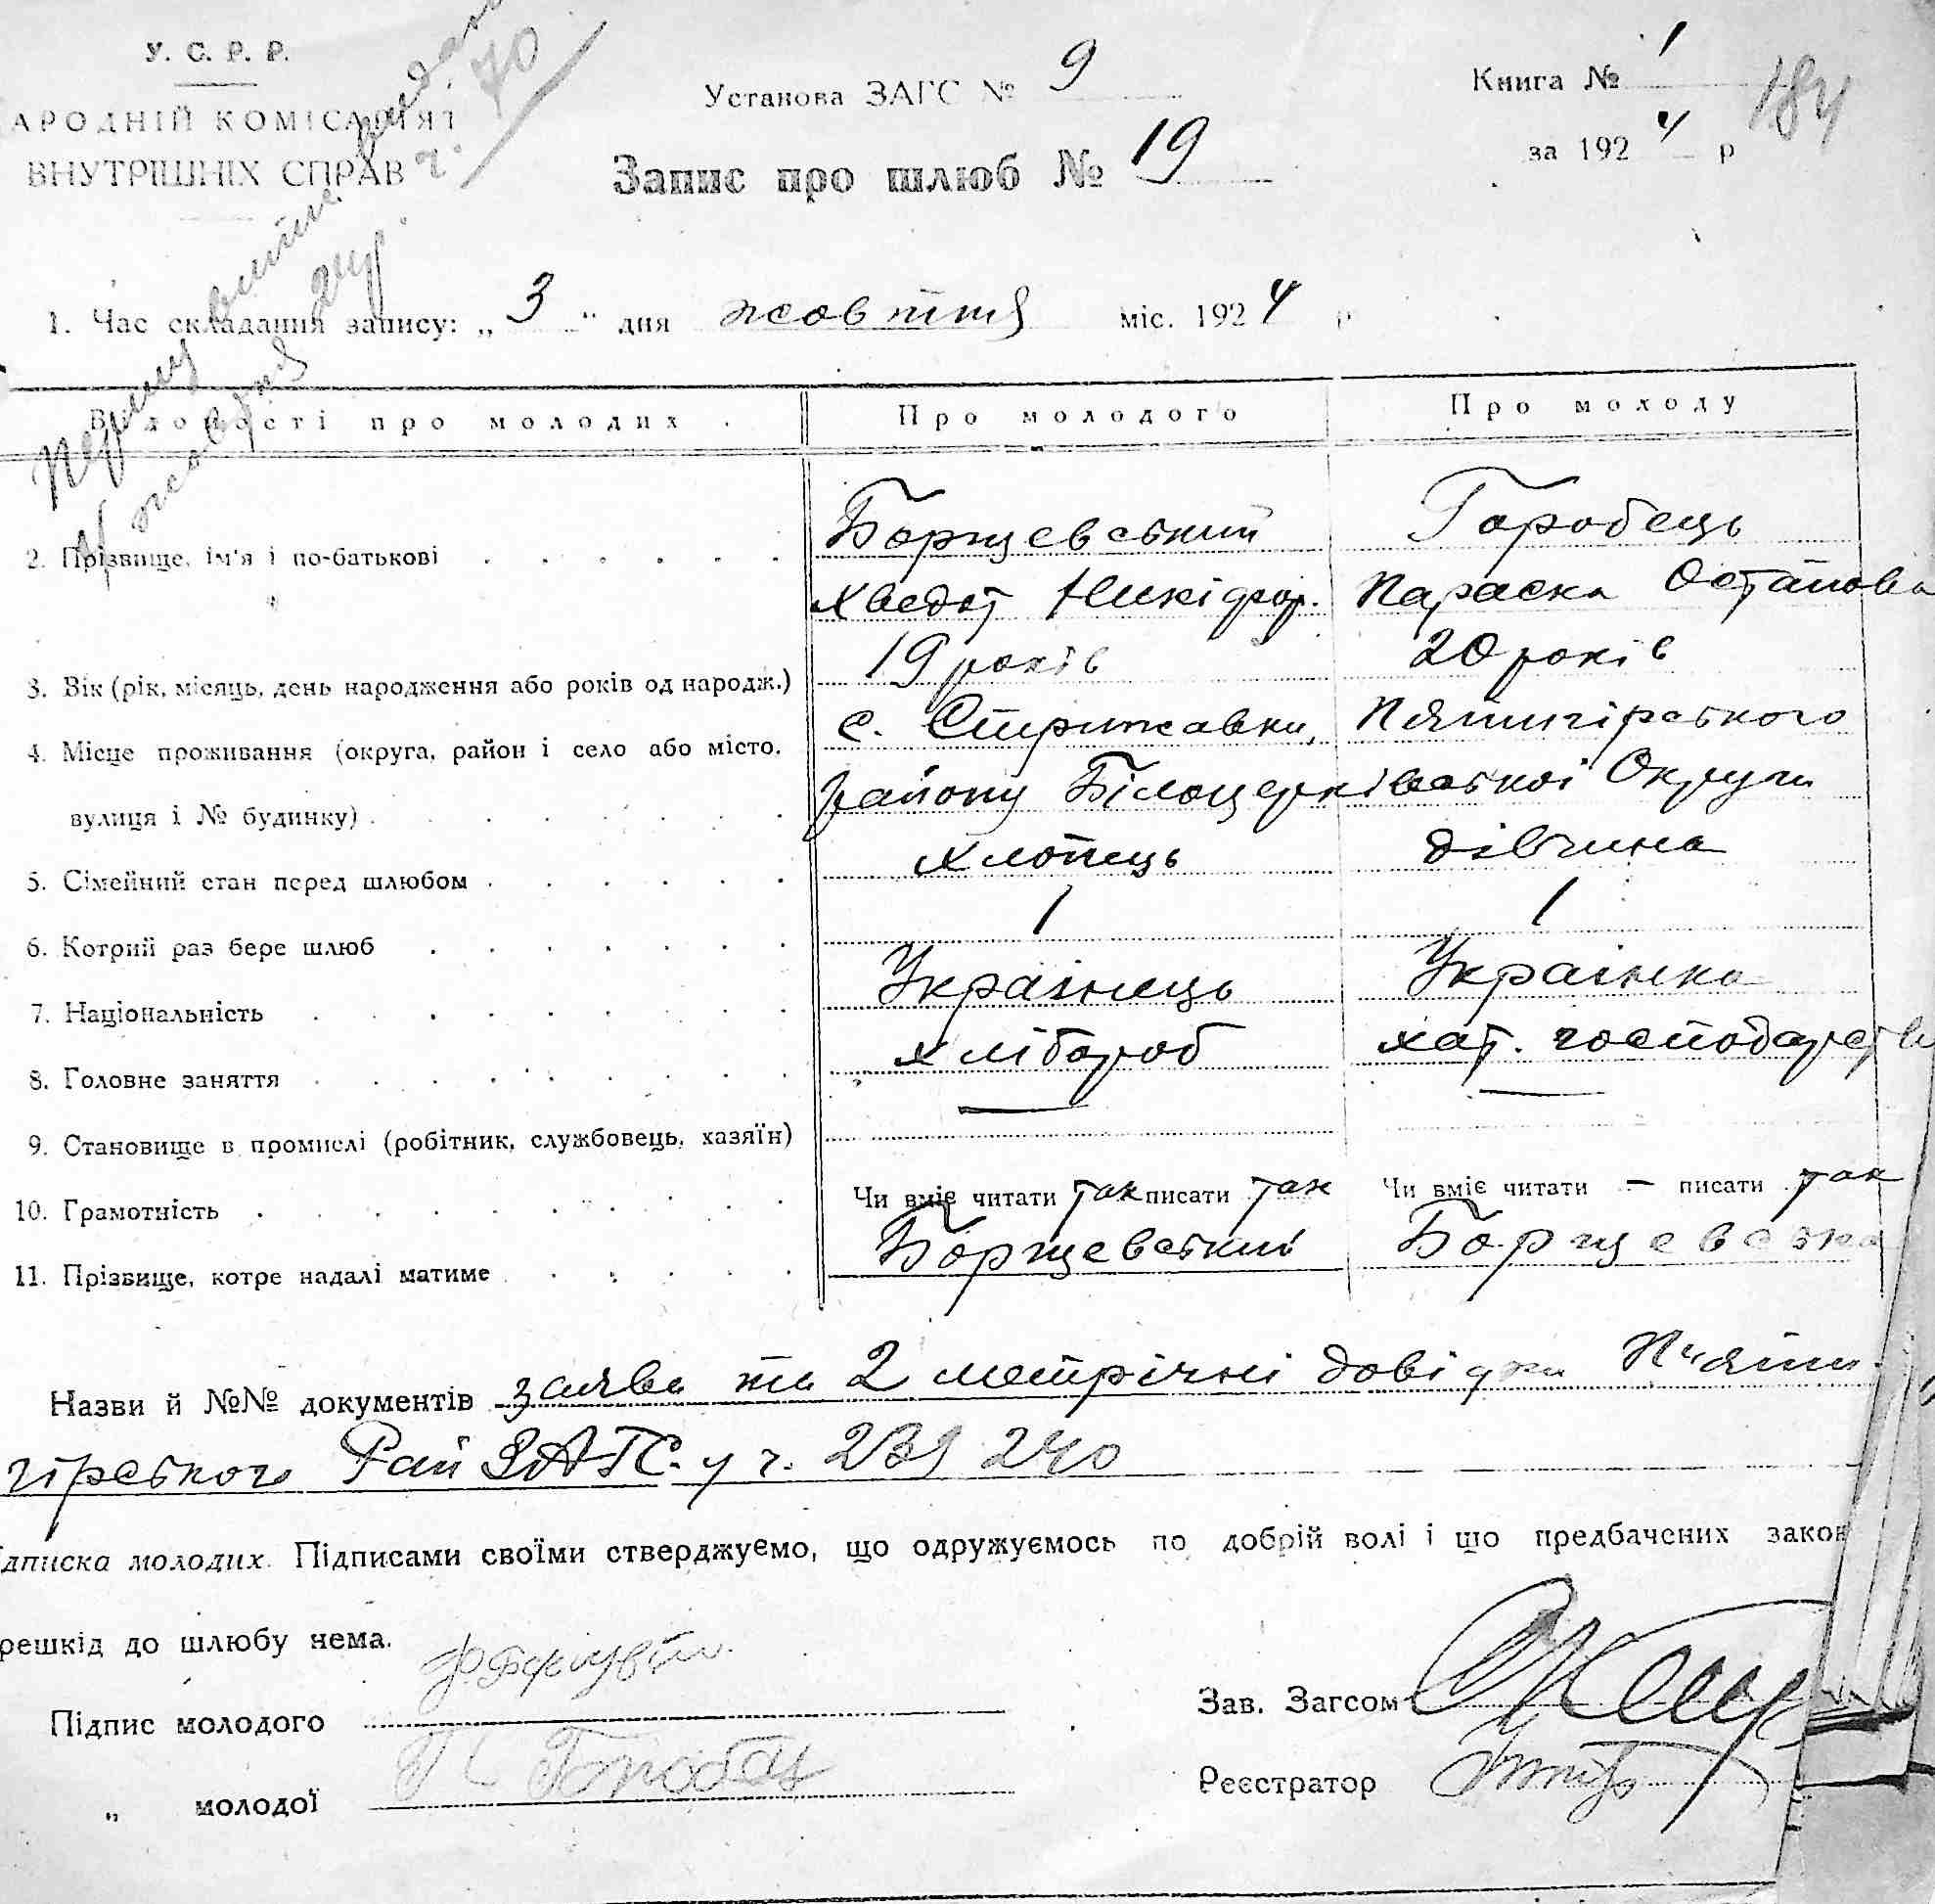 У. С. Р. Р.
АРОДНІЙ КОМІСАРІЯТ
ВНУТРІШНІХ СПРАВ
70
Установа ЗАГС № 9
Запис про шлюб № 19
Книга № 1
за 1924 р
184
1. Час складання запису: „3“ дня жовтня міс. 1924 р
Відомості про молодих . Про молодого Про молоду
Борщевський Городець
2. Прізвище, ім'я і по-батькові
Хведот Никіфор. Параска Остапова
19 років 20 років
3. Вік (рік, місяць, день народження або років од народж.)
с. Стрижавки, Пятигірського
4. Місце проживання (округа, район і село або місто,
району Білоцерківської Округи
вулиця і № будинку)
хлопець дівчина
5. Сімейний стан перед шлюбом
1 1
6. Котрий раз бере шлюб
Українець Українка
7. Національність
хлібороб хат. господарств
8. Головне заняття
9. Становище в промислі (робітник, службовець, хазяїн)
Чи вміє читати так писати так Чи вміє читати – писати так
10. Грамотність
Борщевський Борщевська
11. Прізвище, котре надалі матиме
Назви й №№ документів заява та 2 метрічні довідки Пʼяти-
гірського Рай ЗАГС. у ч. 239 240
дписка молодих. Підписами своїми стверджуємо, що одружуємось по добрій волі і що предбачених закон
решкід до шлюбу нема.
Підпис молодого
Зав. Загсом
„ молодої П Городец
Реєстратор